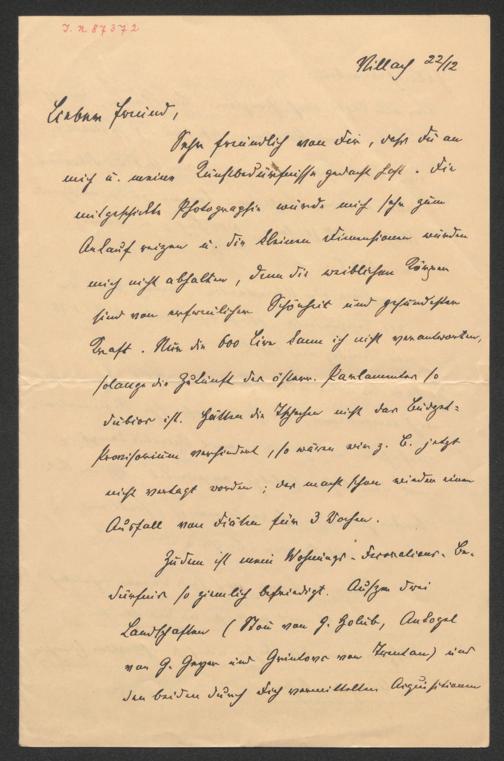 J. N. 87372
Villach 22/12
Lieber Freund,
Sehr freundlich von Dir, daß Du an
mich u. meine Kunstbedürfnisse gedacht hast. Die
mitgeschickte Photographie würde mich sehr zum
Ankauf reizen u. die kleinen Dimensionen würden
mich nicht abhalten, denn die weiblichen Körper
sind von erfreulicher Schönheit und gesündester
Kraft. Nur die 600 Lire kann ich nicht verantworten,
solange die Zukunft des österr. Parlamentes so
dubios ist. Hätten die Tschechen nicht das Budget-
Provisorium verhindert, so wären wir z. B. jetzt
nicht vertagt worden; das macht schon wieder einen
Ausfall von Diäten für 3 Wochen.
Zudem ist mein Wohnungs-Decorations-Be-
dürfnis so ziemlich befriedigt. Außer drei
Landschaften (von G. Holub, Ankogel
von G. Geyer und Grintovc von Trentan) und
den beiden durch Dich vermittelten Acquisitionen